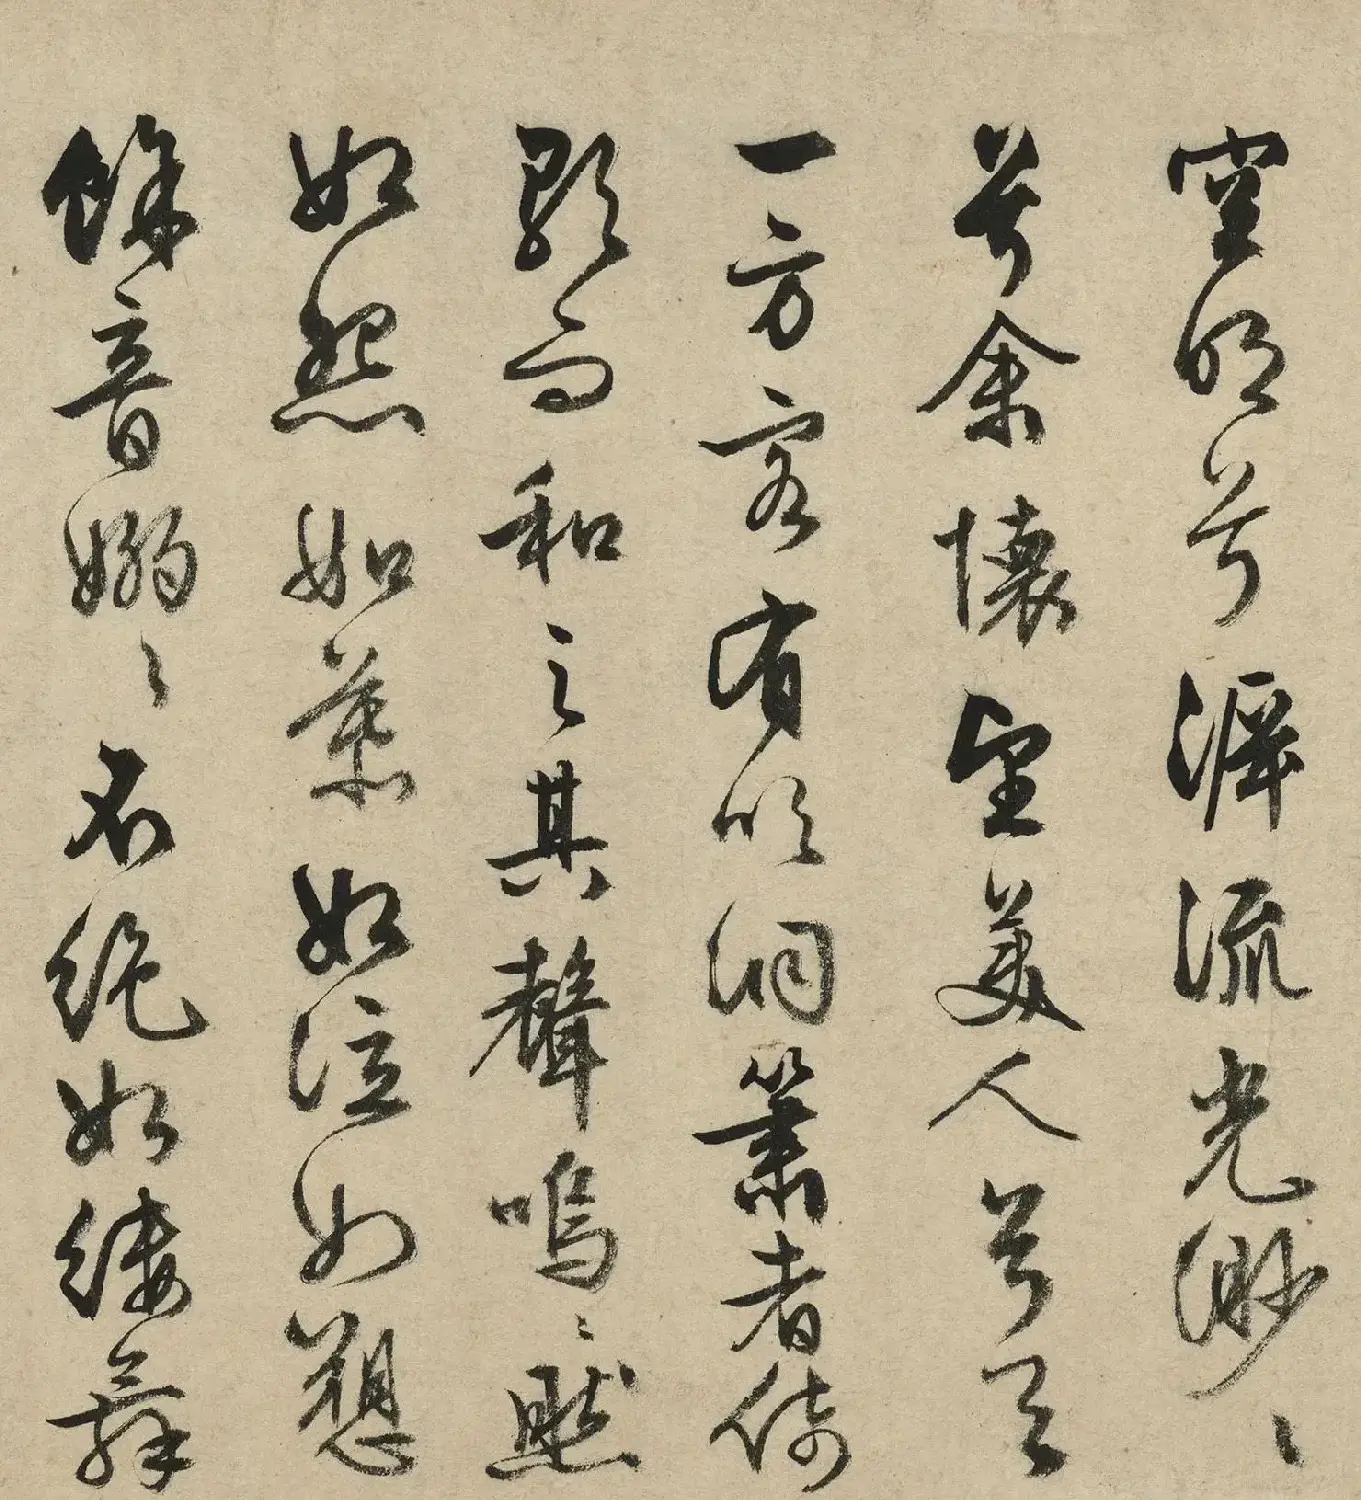 空明兮泝流光渺〻
兮余懷望美人兮天
一方客有吹洞簫者倚
歌而和之其聲嗚〻然
如怨如慕如泣如愬
餘音嫋〻不絕如縷舞